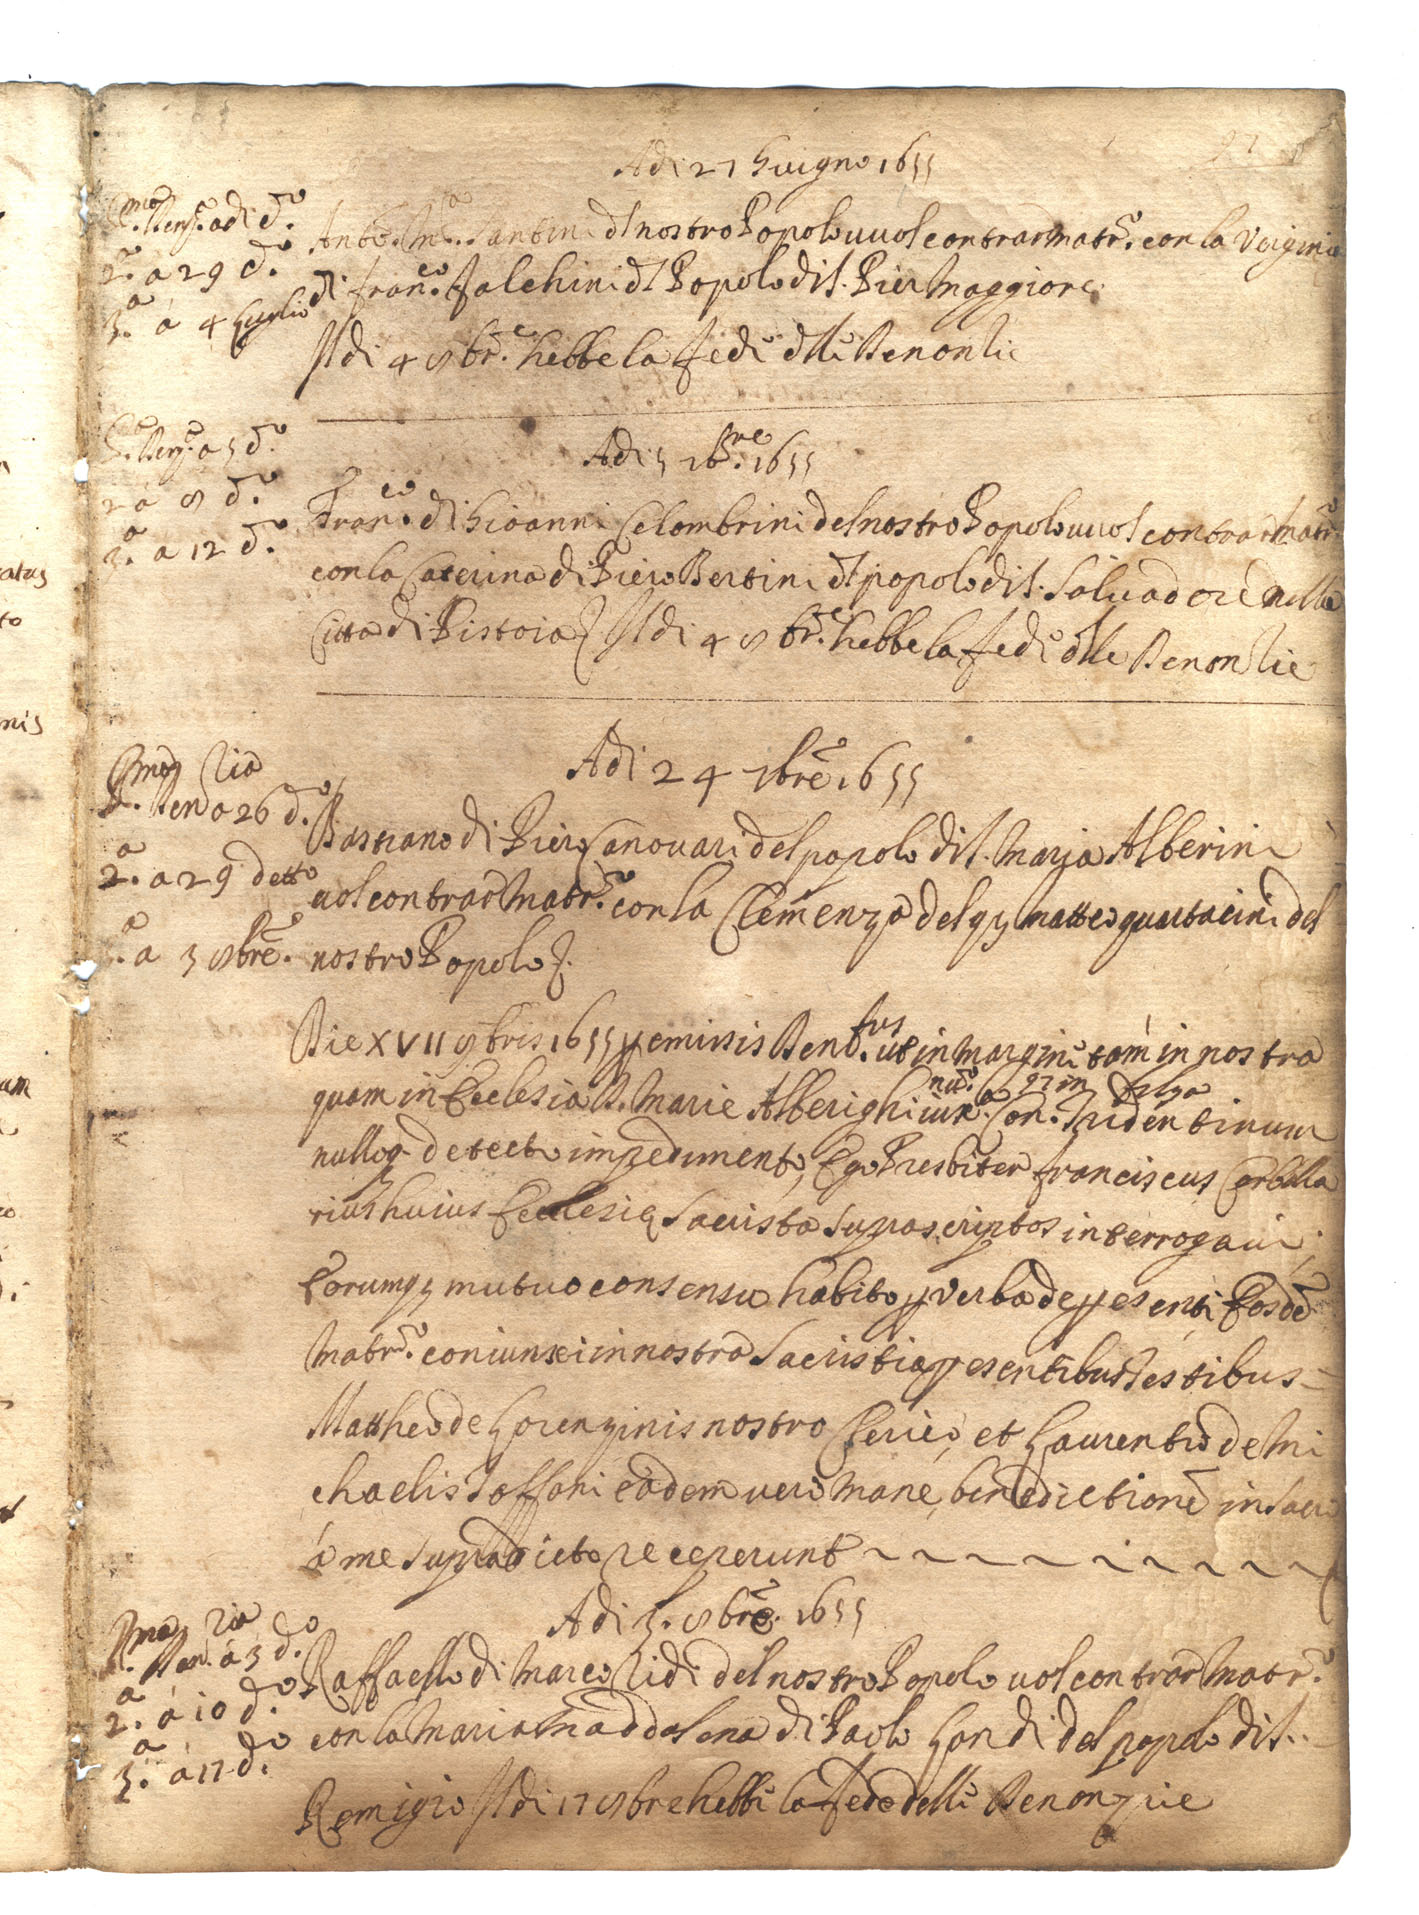 Adi 27 Giugno 1655
P.mo Denz.e adi d.o
2.a a 29 d.o
3.a a 4 Luglio
Ant.o M.a Santini dl nostro Popolo vuol contrar Matr.o con la Verginia
di Fran.co Falchini dl Popolo di S. Pier Maggiore
Adi 4 8br.e hebbe la fede dlle Denontie
Adi 5 7b.re 1655
P.mo Denz.e a 5 d.o
2 a 8 d.o
3.a a 12 d.o
Fran.co di Gioanni Colombrini del nostro Popolo vuol contrar Matr.o
con la Caterina di Piero Bertini dl popolo di S. Salvadore nella
Citta di Pistoia Adi 4 8br.e hebbe la fede dlle Denontie
Adi 24 7bre 1655
P.ma Den a 26 d.o
2.a a 29 detto
3.a a 3 8bre.
Bastiano di Piero Canovari del popolo di S. Maria Alberini
vol contrar Matr.o con la Clemenza del q Matteo quartacini del
nostro Popolo
Die XVII 9bris 1655 pemissis Dent.bus ut in margine tam in nostra
quam in Ecclesia S. Marie Alberighi iuxa Con. Tridentinum
nulloq detecto impedimento, Ego Presbiter franciscus Corbella
rius huius Ecclesie Sacrista suprascriptos interrogavi;
Eorumq mutuo consensu habito p verba de pesenti Eosde
Matr.o coniunxi in nostra Sacristia pesentibus Testibus
Mattheo de Lorenzinis nostro Clerico, et Laurentio de Mi
chaelis Toffani eadem vero mane, benedictione in Sacro
a me supradicto receperunt
Adi 3. 8bre. 1655
P.ma Den. a 3 d.o
2.a a 10 d.o
3.a a 17 d.o
Raffaello di Marco Ridi del nostro Popolo vol contrar Matr.o
con la Maria Maddalena di Paolo Landi del popolo di S.
Remigio Adi 17 8bre hebbe la fede delle Denonzie